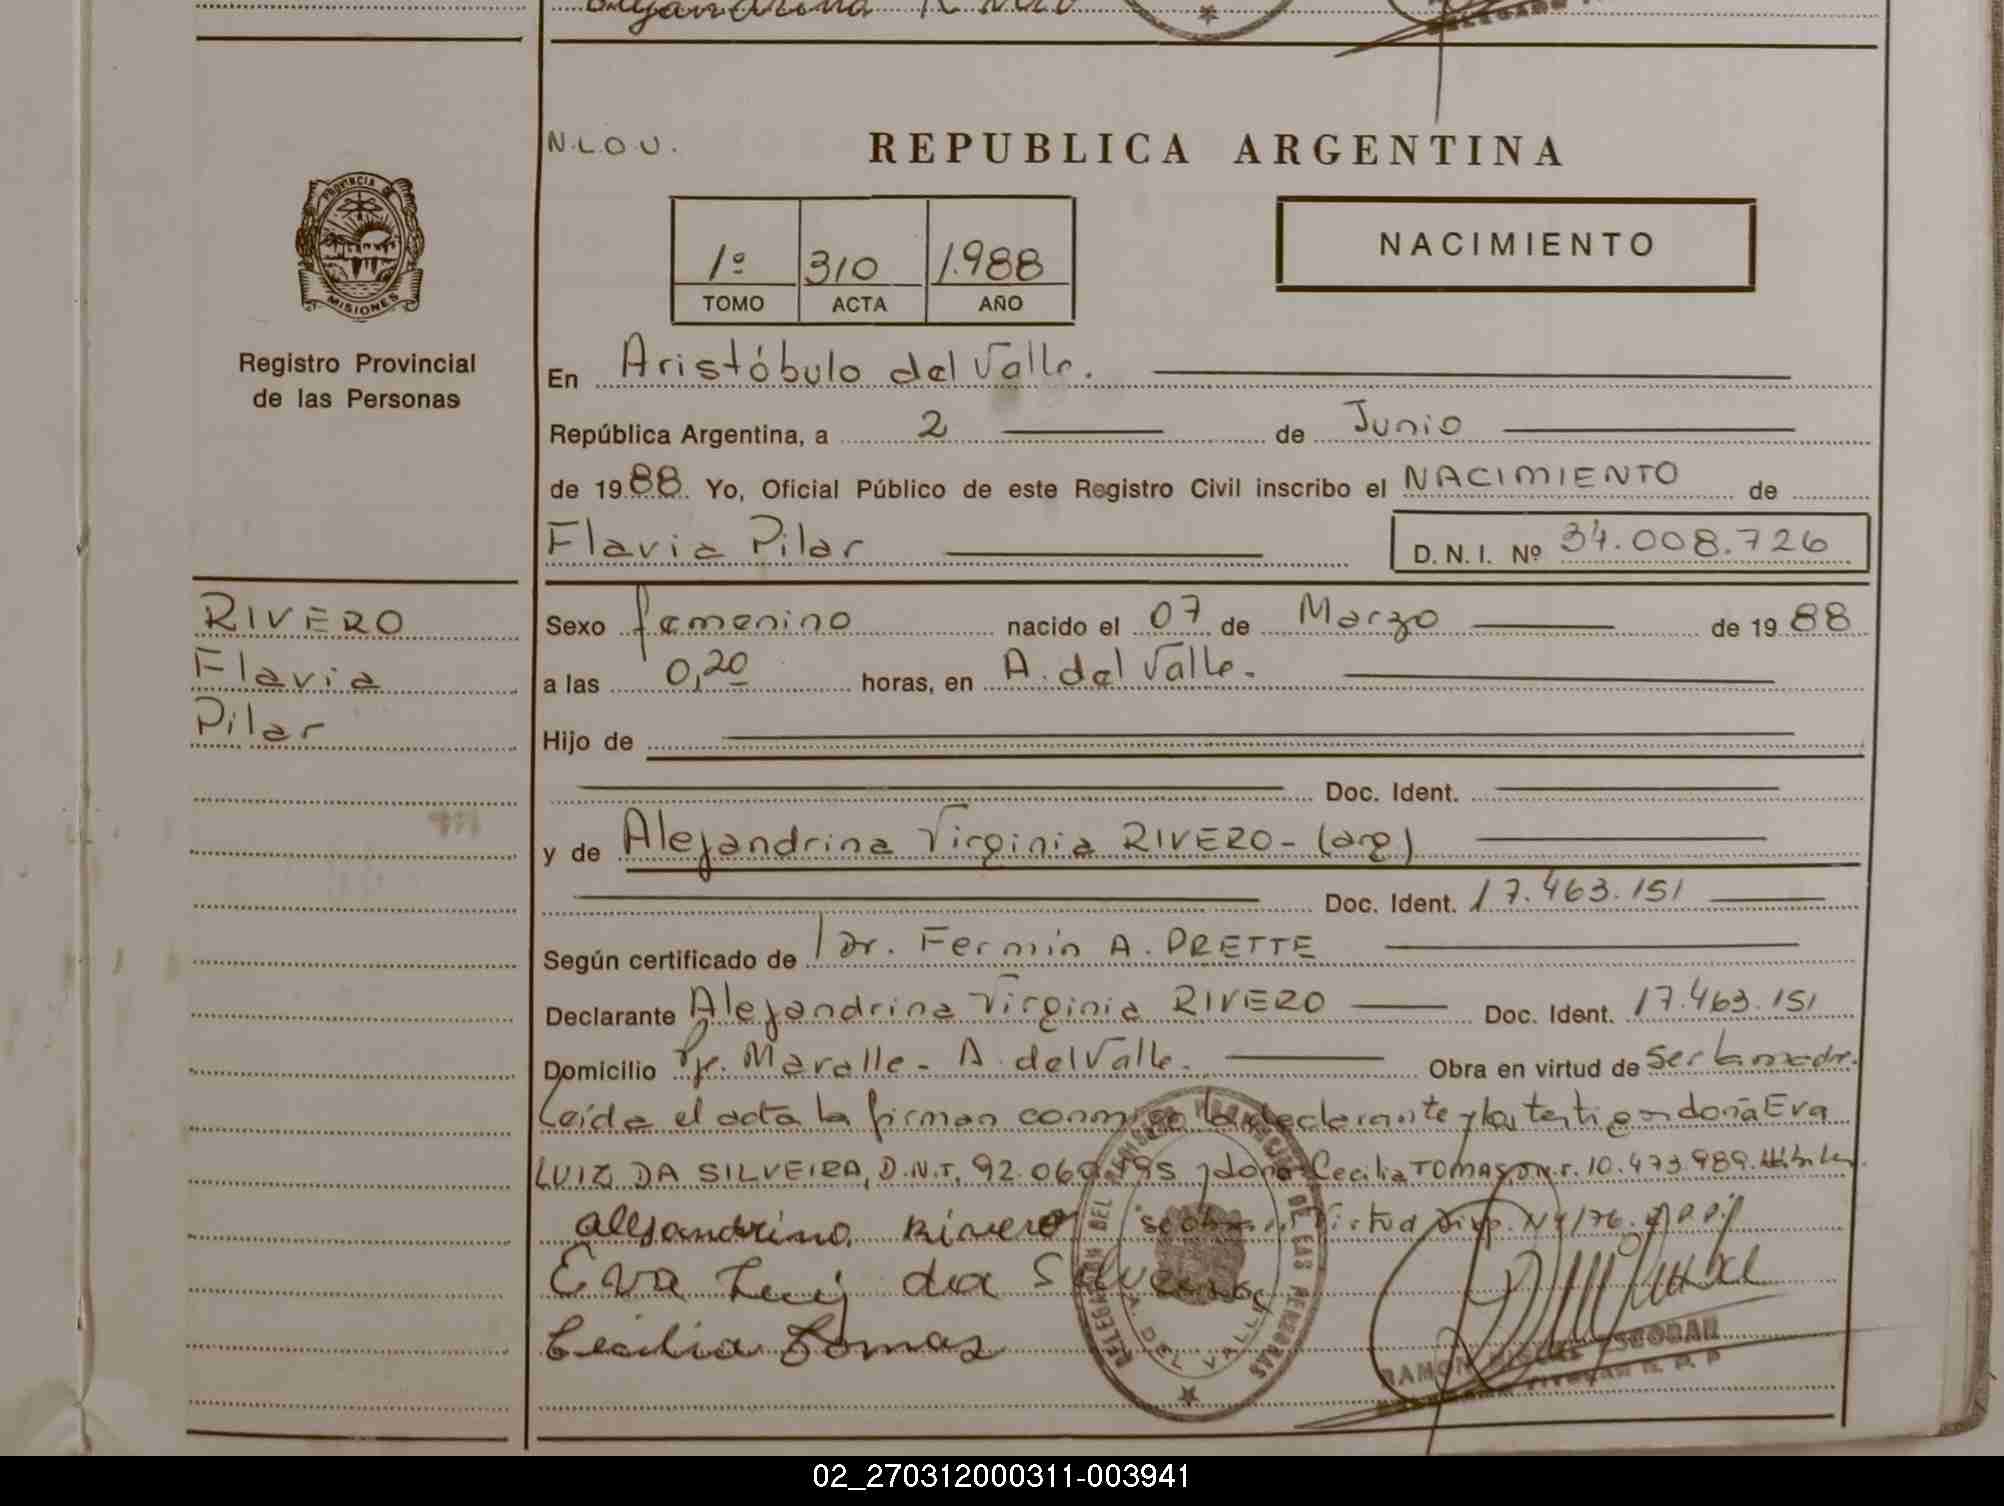 N.L.O.U.
REPUBLICA ARGENTINA
PROVINCIA DE
MISIONES
Registro Provincial
de las Personas
1º 310 1.988
TOMO ACTA AÑO
NACIMIENTO
En Aristóbulo del Valle.
República Argentina, a 2 de Junio
de 1988. Yo, Oficial Público de este Registro Civil inscribo el NACIMIENTO de
Flavia Pilar D. N. I. Nº 34.008.726
RIVERO
Flavia
Pilar
Sexo femenino nacido el 07 de Marzo de 1988
a las 0,20 horas, en A. del Valle.
Hijo de
Doc. Ident.
y de Alejandrina Virginia RIVERO - (arg)
Doc. Ident. 17.463.151
Según certificado de Dr. Fermín A. PRETTE
Declarante Alejandrina Virginia RIVERO Doc. Ident. 17.463.151
Domicilio Pje. Maralle - A. del Valle. Obra en virtud de ser la madre.
Leída el acta la firman conmigo la declarante y los testigos doña Eva
LUIZ DA SILVEIRA, D.N.I. 92.060.195 y doña Cecilia TOMAS 10.473.989.
Alejandrina Rivero
Eva Luiz da Silveira
Cecilia Tomas
DELEGACION DEL REGISTRO PROVINCIAL DE LAS PERSONAS
A. DEL VALLE
RAMON MIGUEL ESCOBAR
02_270312000311-003941